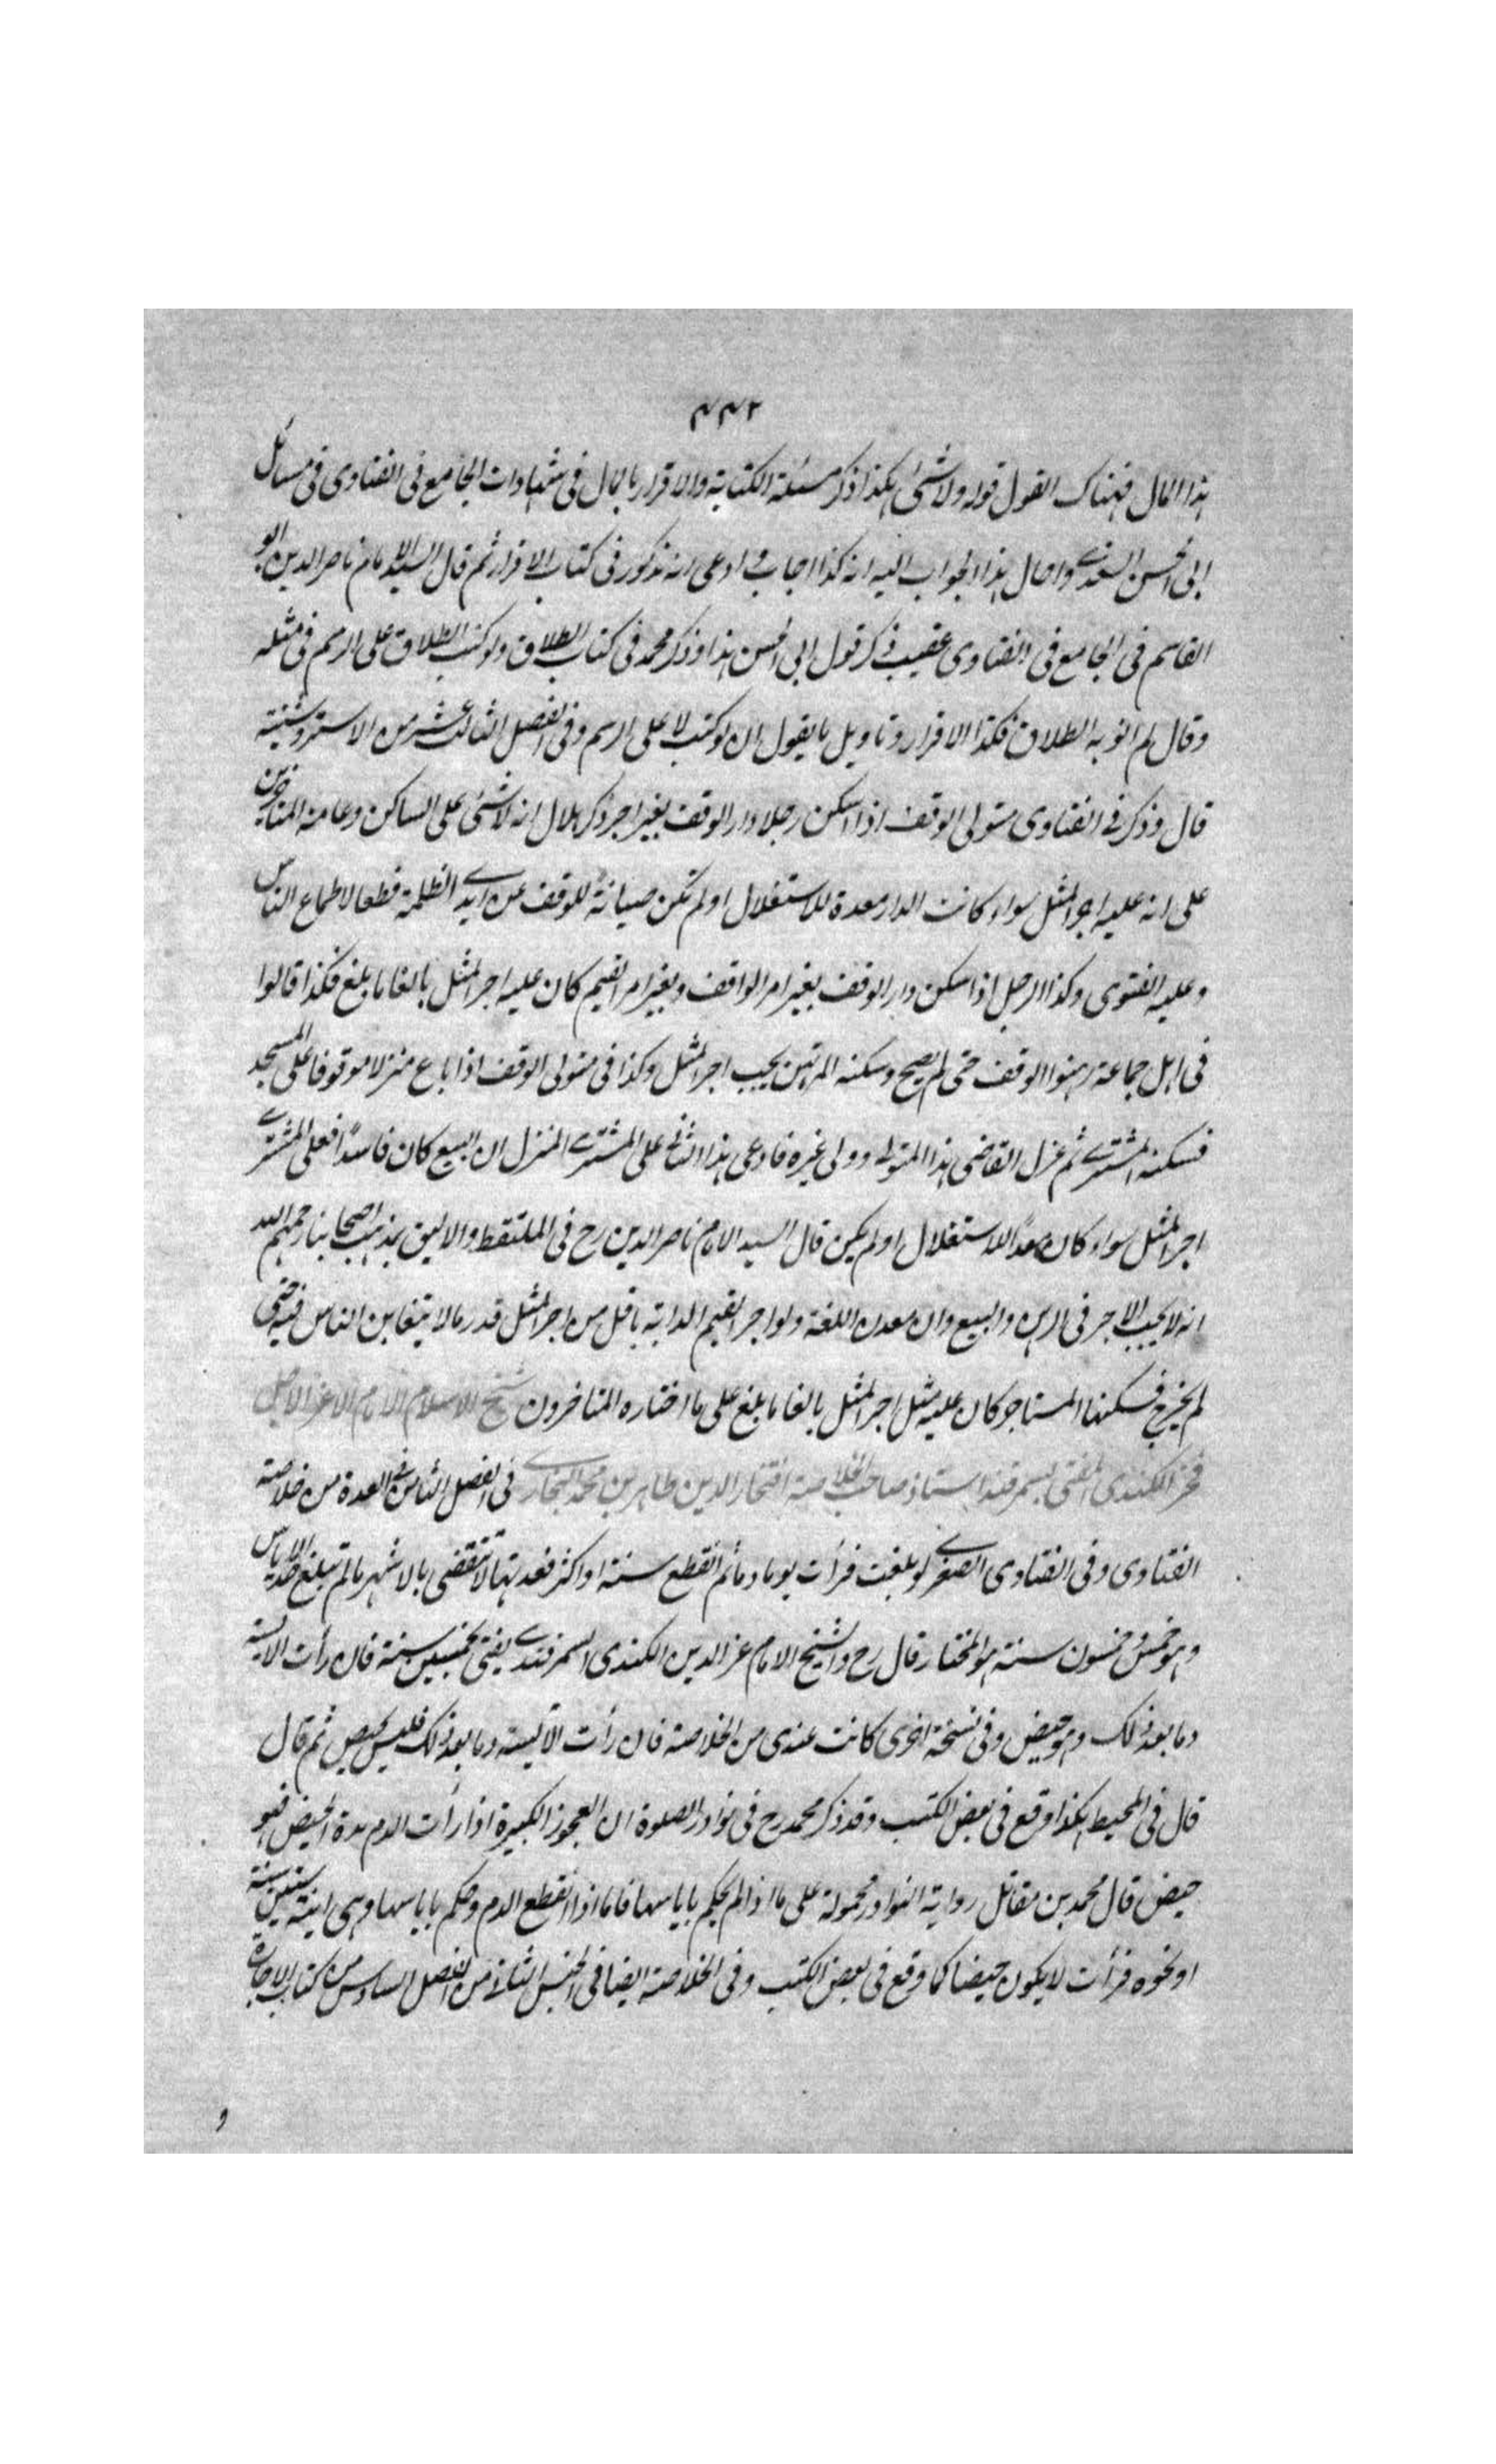 ٤٤٢
هذا المال فهناك القول قوله ولا شئ هكذا ذكر مسئلة الكتابة والاقرار بالمال فى شهادات الجامع فى الفتاوى فى مسائل
ابى الحسن السغدى واحال هذا الجواب اليه انه كذا اجاب وادعى انه مذكور فى كتاب الاقرار ثم قال السيد الامام ناصر الدين ابو
القاسم فى الجامع فى الفتاوى عقيب ذكر قول ابى الحسن هذا وذكر محمد فى كتاب الطلاق ولو كتب الطلاق على الرسم فى مثله
وقال لم انو به الطلاق فكذا الاقرار وتاويل ما يقول ان لو كتب لا على الرسم وفى الفصل الثالث عشر من الاستروشنية
قال وذكر فى الفتاوى متولى الوقف اذا اسكن رجلا دار الوقف بغير اجر ذكر هلال انه لا شئ على الساكن وعامة المتاخرين
على انه عليه اجر المثل سواء كانت الدار معدة للاستغلال او لم تكن صيانة للوقف عن ايدى الظلمة قطعا لاطماع الناس
وعليه الفتوى وكذا الرجل اذا سكن دار الوقف بغير امر الواقف وبغير امر القيم كان عليه اجر المثل بالغا ما بلغ فكذا قالوا
فى اهل جماعة رهنوا الوقف حتى لم يصح وسكنه المرتهن يجب اجر المثل وكذا فى متولى الوقف اذا باع منزلا موقوفا على المسجد
فسكنه المشترى ثم عزل القاضى هذا المتولى وولى غيره فادعى هذا الثانى على المشترى المنزل ان البيع كان فاسدا فعلى المشترى
اجر المثل سواء كان معدا للاستغلال او لم يكن قال السيد الامام ناصر الدين رح فى الملتقط والاليق بمذهب اصحابنا رحمهم الله
انه لا يجب الاجر فى الرهن والبيع وان معدن اللغة ولو اجر القيم الدابة باقل من اجر المثل قدر ما لا يتغابن الناس فيه حتى
لم يجز فسكنها المستاجر كان عليه مثل اجر المثل بالغا ما بلغ على ما اختاره المتاخرون شيخ الاسلام الامام الاعز الاجل
فخر الكندى المفتى بسمرقند استاذ صاحب الخلاصة افتخار الدين طاهر بن محمد البخارى فى الفصل الثامن فى العدة من خلاصة
الفتاوى وفى الفتاوى الصغرى لو بلغت فرأت يوما دما ثم انقطع سنة او اكثر فعدتها لا تنقضى بالاشهر ما لم تبلغ حد الاياس
وهو خمس وخمسون سنة هو المختار قال رح والشيخ الامام عز الدين الكندى السمرقندى يفتى بخمسين سنة فان رأت الايسة
دما بعد ذلك وهو حيض وفى نسخة اخرى كانت عندى من الخلاصة فان رأت الآيسة دما بعد ذلك فليس بحيض ثم قال
قال فى المحيط هكذا وقع فى بعض الكتب وقد ذكر محمد رح فى نوادر الصلوة ان العجوز الكبيرة اذا رأت الدم مدة الحيض فهو
حيض قال محمد بن مقاتل رواية النوادر محمولة على ما اذا لم يحكم باياسها فاما اذا انقطع الدم وحكم باياسها وهى ابنة ستين سنة
او نحوه فرأت لا يكون حيضا كما وقع فى بعض الكتب وفى الخلاصة ايضا فى الجنس الثالث من الفصل السادس من كتاب الاجارة
و